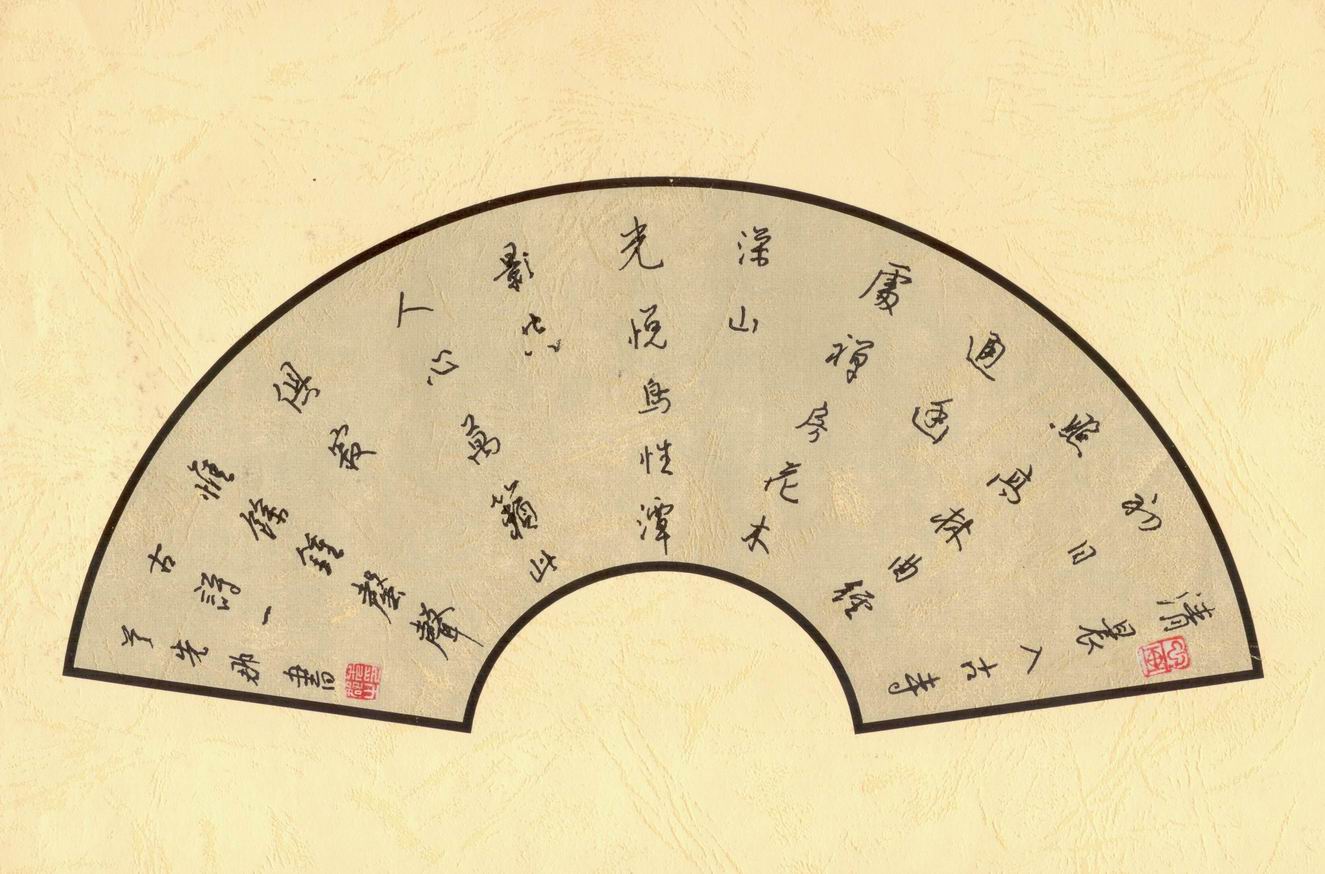 清晨入古寺
初日
照高林曲徑
通幽
處禪房花木
深山
光悅鳥性潭
影空
人心萬籟此
俱寂
惟餘鐘磬聲
古詩一
先 書